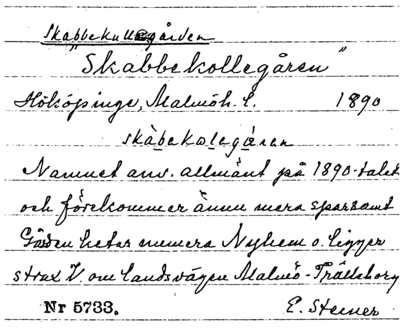 Skabbekullegården
"Skabbekollegåren"
Hököpinge, Malmöh. l. 1890
skàbekolegáren
Namnet anv. allmänt på 1890-talet
och förekommer ännu mera sparsamt
Gården heter numera Nyhem o. ligger
strax V. om landsvägen Malmö-Trälleborg
Nr 5733. E. Steiner